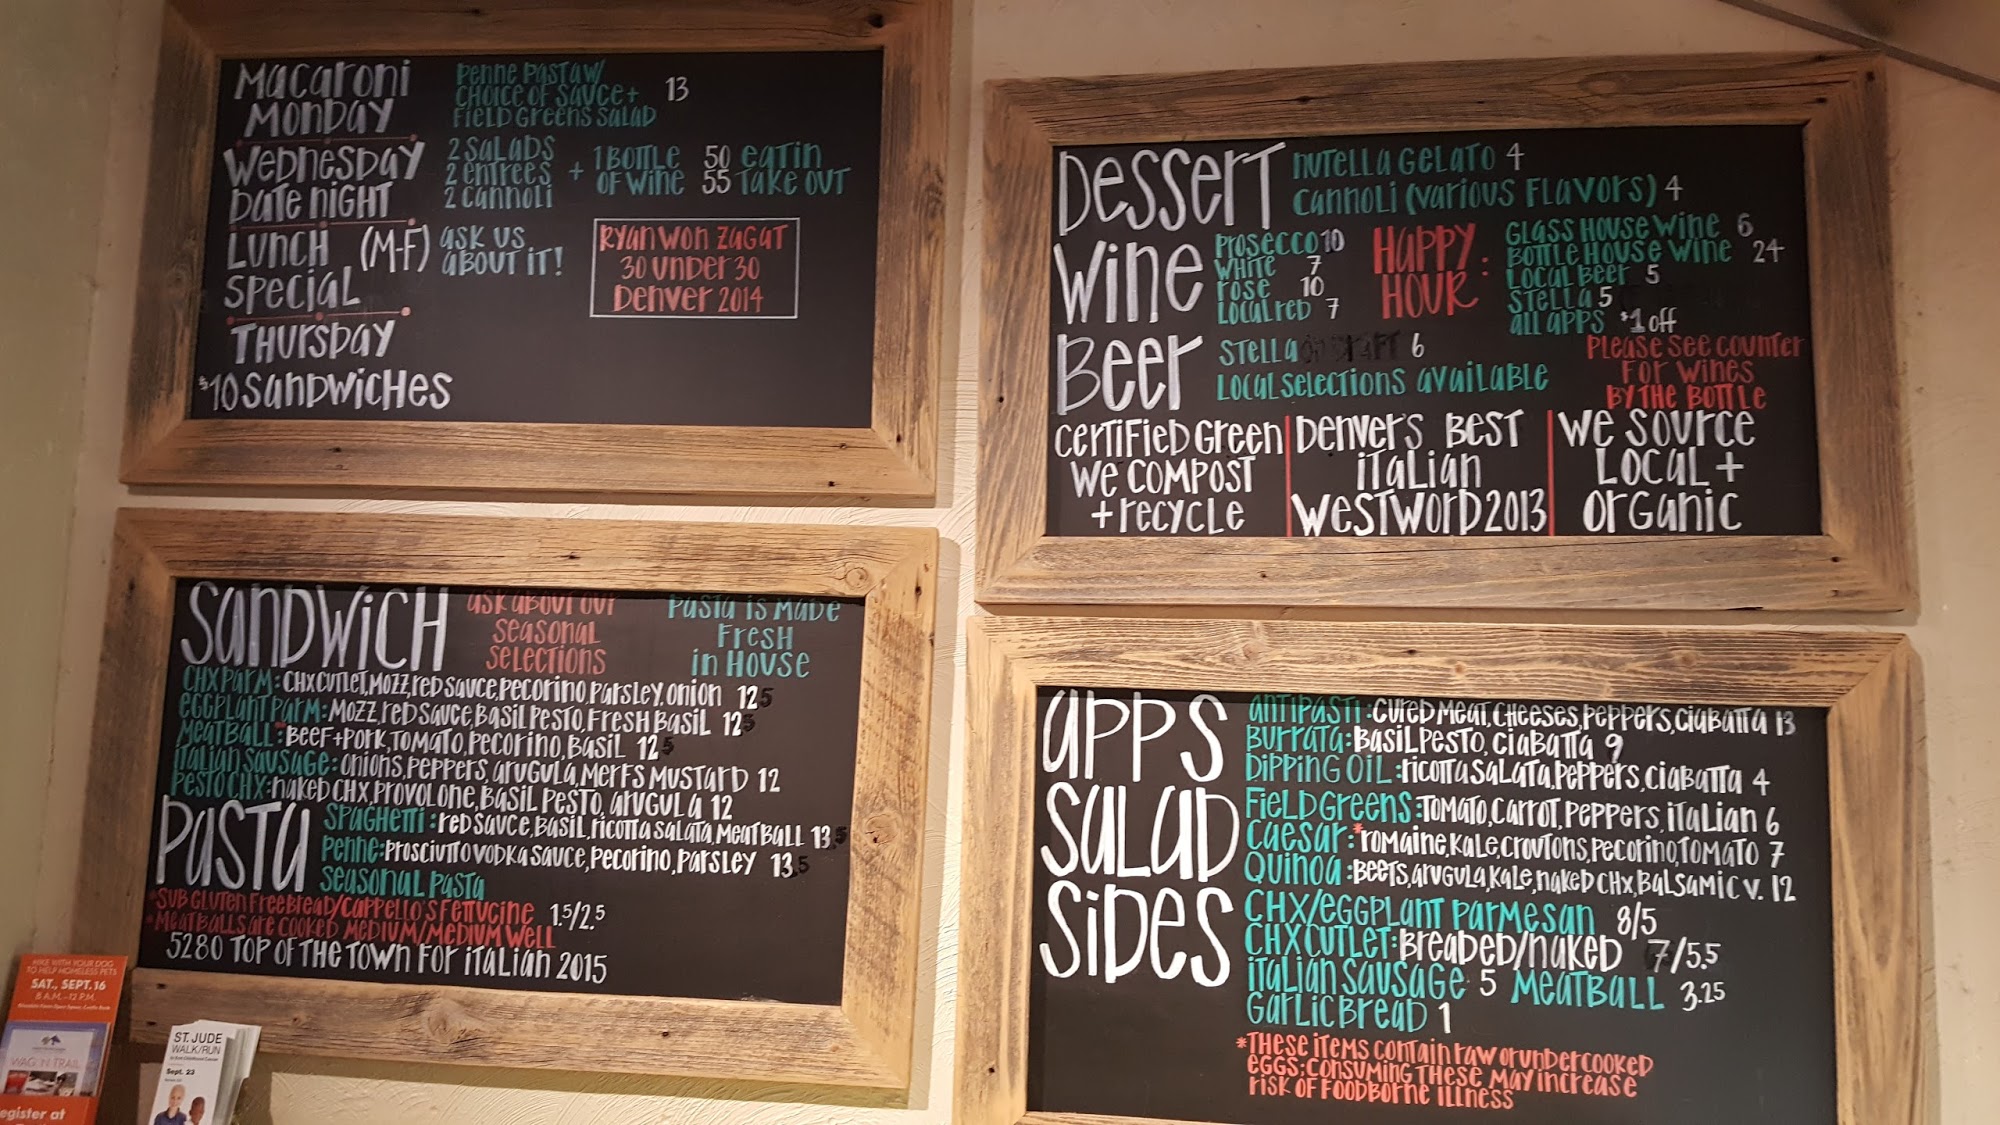 Macaroni
Monday
Penne Pasta w/
choice of sauce +
field greens salad
13
Wednesday
Date Night
2 salads
2 entrees
2 cannoli
+ 1 bottle
of wine
50 eat in
55 take out
Lunch
Special
(M-F)
ask us
about it!
Ryan won Zagat
30 under 30
Denver 2014
Thursday
$10 sandwiches
Dessert
Nutella Gelato 4
Cannoli (various flavors) 4
Wine
Prosecco 10
White 7
Rose 10
Local red 7
Happy
Hour :
Glass house wine 6
Bottle house wine 24
Local beer 5
Stella 5
all apps $1 off
Beer
Stella on draft 6
Local selections available
Please see counter
for wines
by the bottle
Certified Green
We compost
+ recycle
Denver's Best
Italian
Westword 2013
We source
local +
organic
Sandwich
ask about our
seasonal
selections
Pasta is made
fresh
in house
Chx Parm: chx cutlet, mozz, red sauce, pecorino, parsley, onion 12.5
Eggplant Parm: mozz, red sauce, basil pesto, fresh basil 12.5
Meatball:* beef + pork, tomato, pecorino, basil 12.5
Italian Sausage: onions, peppers, arugula, merfs mustard 12
Pesto Chx: naked chx, provolone, basil pesto, arugula 12
Pasta
Spaghetti: red sauce, basil, ricotta salata, meatball 13.5
Penne: prosciutto vodka sauce, pecorino, parsley 13.5
Seasonal Pasta
*Sub gluten free bread/Cappello's fettucine 1.5/2.5
*Meatballs are cooked medium/medium well
5280 Top of the Town for Italian 2015
Apps
Antipasti: cured meat, cheeses, peppers, ciabatta 13
Burrata: basil pesto, ciabatta 9
Dipping oil: ricotta salata, peppers, ciabatta 4
Salad
Field Greens: tomato, carrot, peppers, italian 6
Caesar:* romaine, kale, croutons, pecorino, tomato 7
Quinoa: beets, arugula, kale, naked chx, balsamic v. 12
Sides
Chx/Eggplant Parmesan 8/5
Chx cutlet: breaded/naked 7/5.5
Italian Sausage 5 Meatball 3.25
Garlic Bread 1
*These items contain raw or undercooked
eggs; consuming these may increase
risk of foodborne illness
HIKE WITH YOUR DOG
TO HELP HOMELESS PETS
SAT., SEPT. 16
8 A.M.-12 P.M.
WAG 'N TRAIL
egister at
ST. JUDE
WALK/RUN
Sept. 23